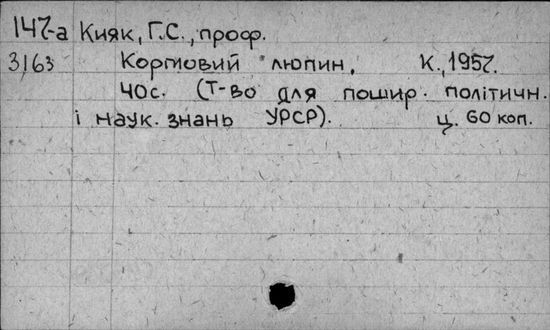 147-а Кияк, Г.С., проф.
3163 Кормовий люпин. К., 1957.
40с. (Т-во для пошир. політичн.
і наук. знань УРСР). ц. 60 коп.